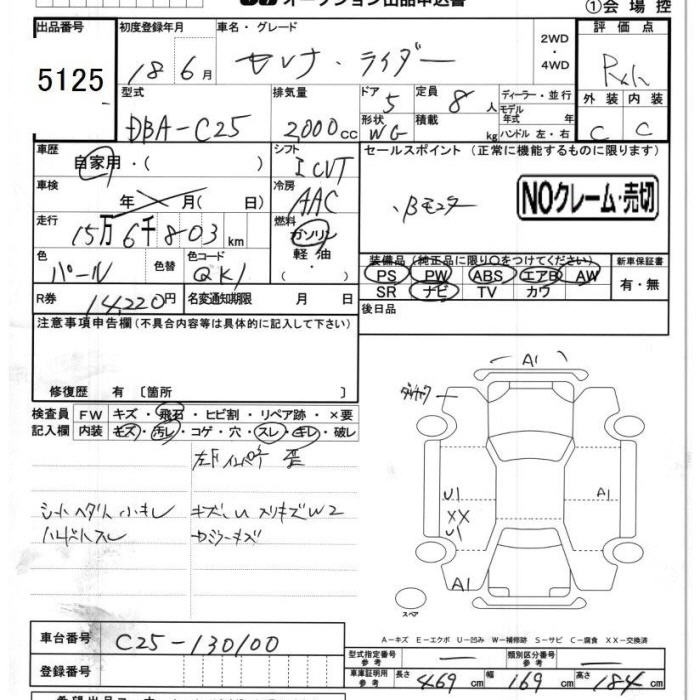 オークション出品申込書
①会場控
出品番号
5125
初度登録年月
18 6月
車名・グレード
セレナ・ライダー
2WD
・
4WD
評価点
外装 内装
C C
型式
DBA-C25
排気量
2000cc
ドア 5
形状 WG
定員 8人
積載 kg
ディーラー・並行
モデル
年式 年
ハンドル 左・右
車歴
自家用・( )
シフト
I CVT
セールスポイント (正常に機能するものに限ります)
車検
年 月( 日)
冷房
AAC
NOクレーム・売切
走行
15万6千803km
燃料
ガソリン
軽油
・
( )
色
パール
色替
色コード
QK1
装備品(純正品に限り○をつけてください)
PS PW ABS エアB AW
SR ナビ TV カワ
新車保証書
有・無
R券
14,220円
名変通知期限 月 日
後日品
注意事項申告欄(不具合内容等は具体的に記入して下さい)
修復歴 有 〔箇所 〕
検査員
記入欄
FW キズ・飛石・ヒビ割・リペア跡・×要
内装 キズ・汚レ・コゲ・穴・スレ・キレ・破レ
シートヘタリ 小キレ
ハンドルスレ
A1
A1
U1
XX
U1
A1
スペア
A-キズ E-エクボ U-凹み W-補修跡 S-サビ C-腐食 XX-交換済
車台番号
C25-130100
登録番号
型式指定番号
参考
類別区分番号
参考
車庫証明用
参考
長さ 469cm 幅 169cm 高さ 184cm